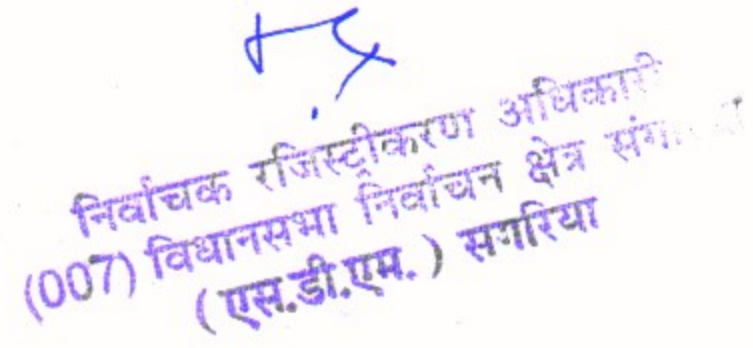 निर्वाचक रजिस्ट्रीकरण अधिकारी
(007) विधानसभा निर्वाचन क्षेत्र
(एस.डी.एम.) सगरिया